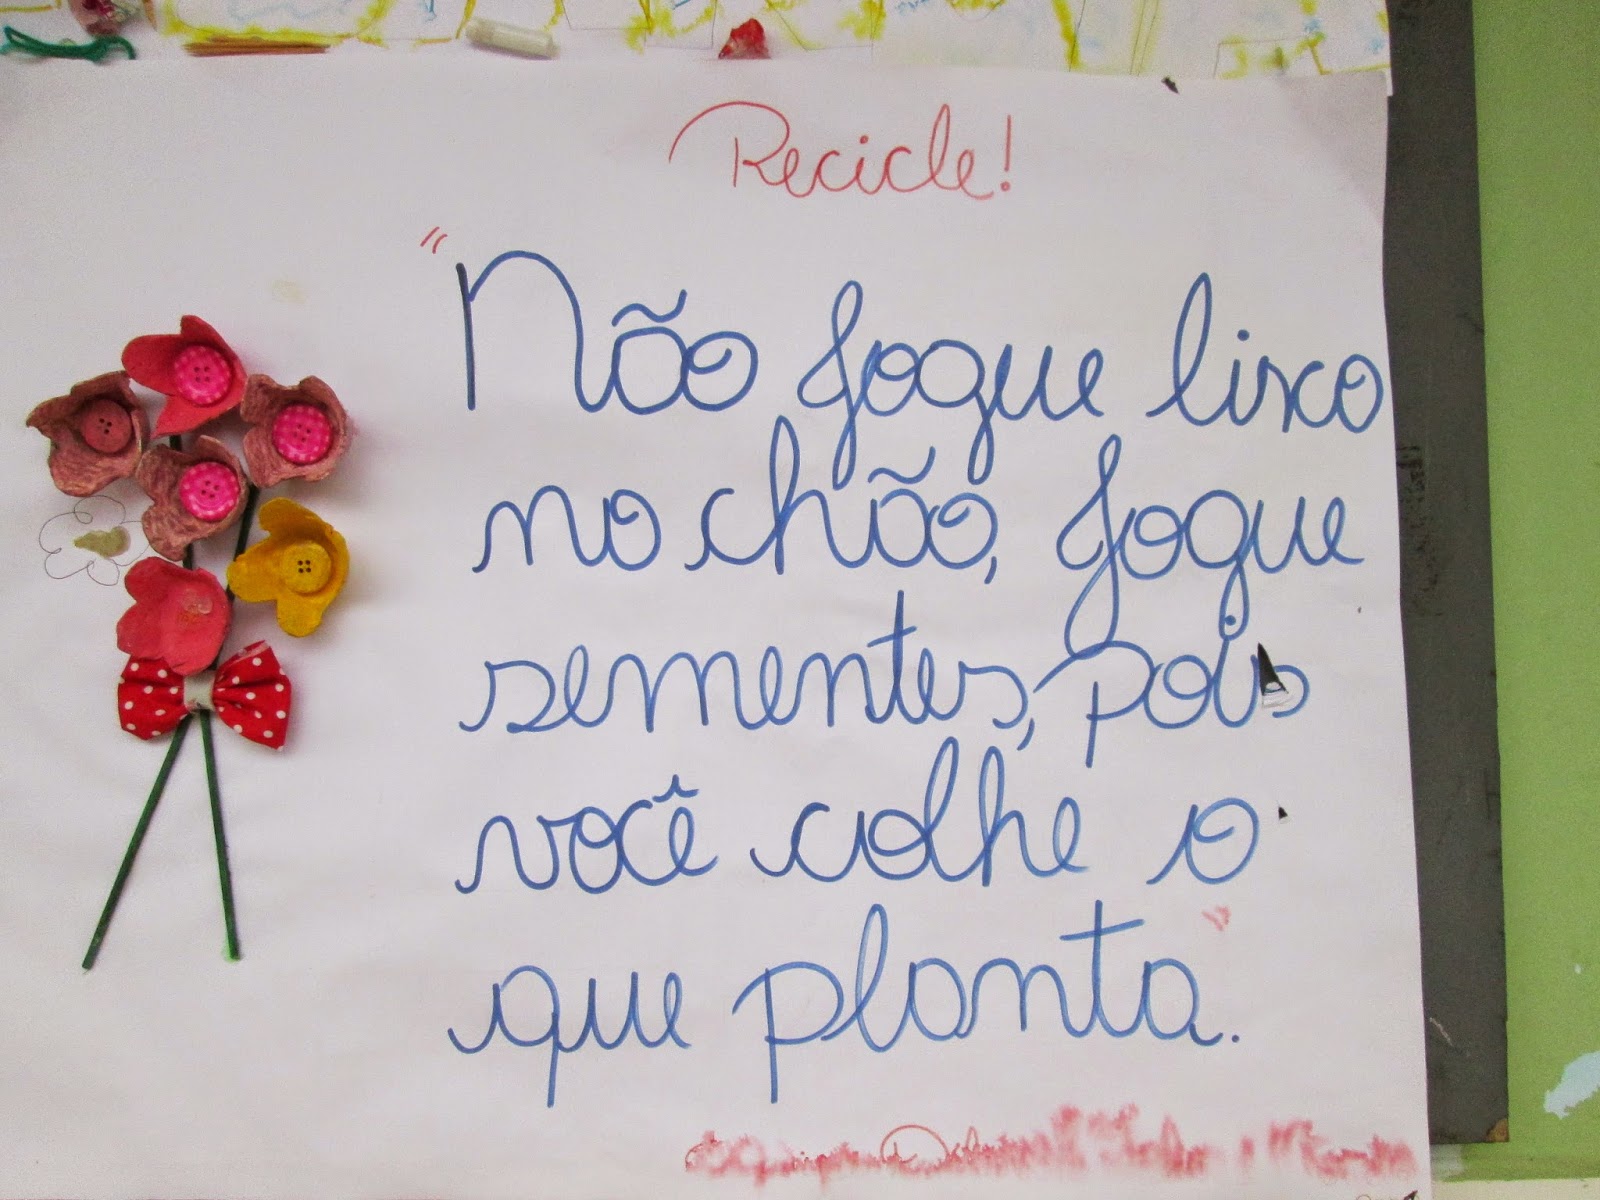 Recicle!
"Não jogue lixo
no chão, jogue
sementes, pois
você colhe o
que planta."